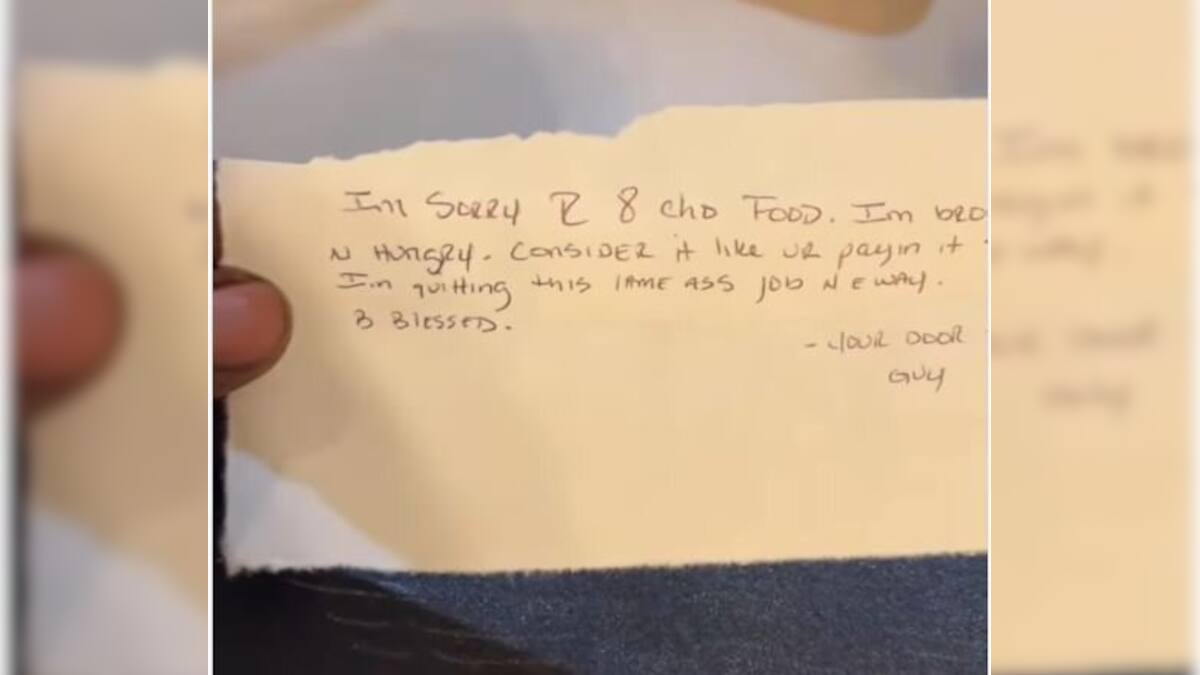 Im SORRY I 8 Cho FOOD. Im bro
N HUNGRY. CONSIDER it like UR payin it
I.m quitting this lAME ASS job N E WAY.
B BlESSED.
- YOUR DOOR
GUY